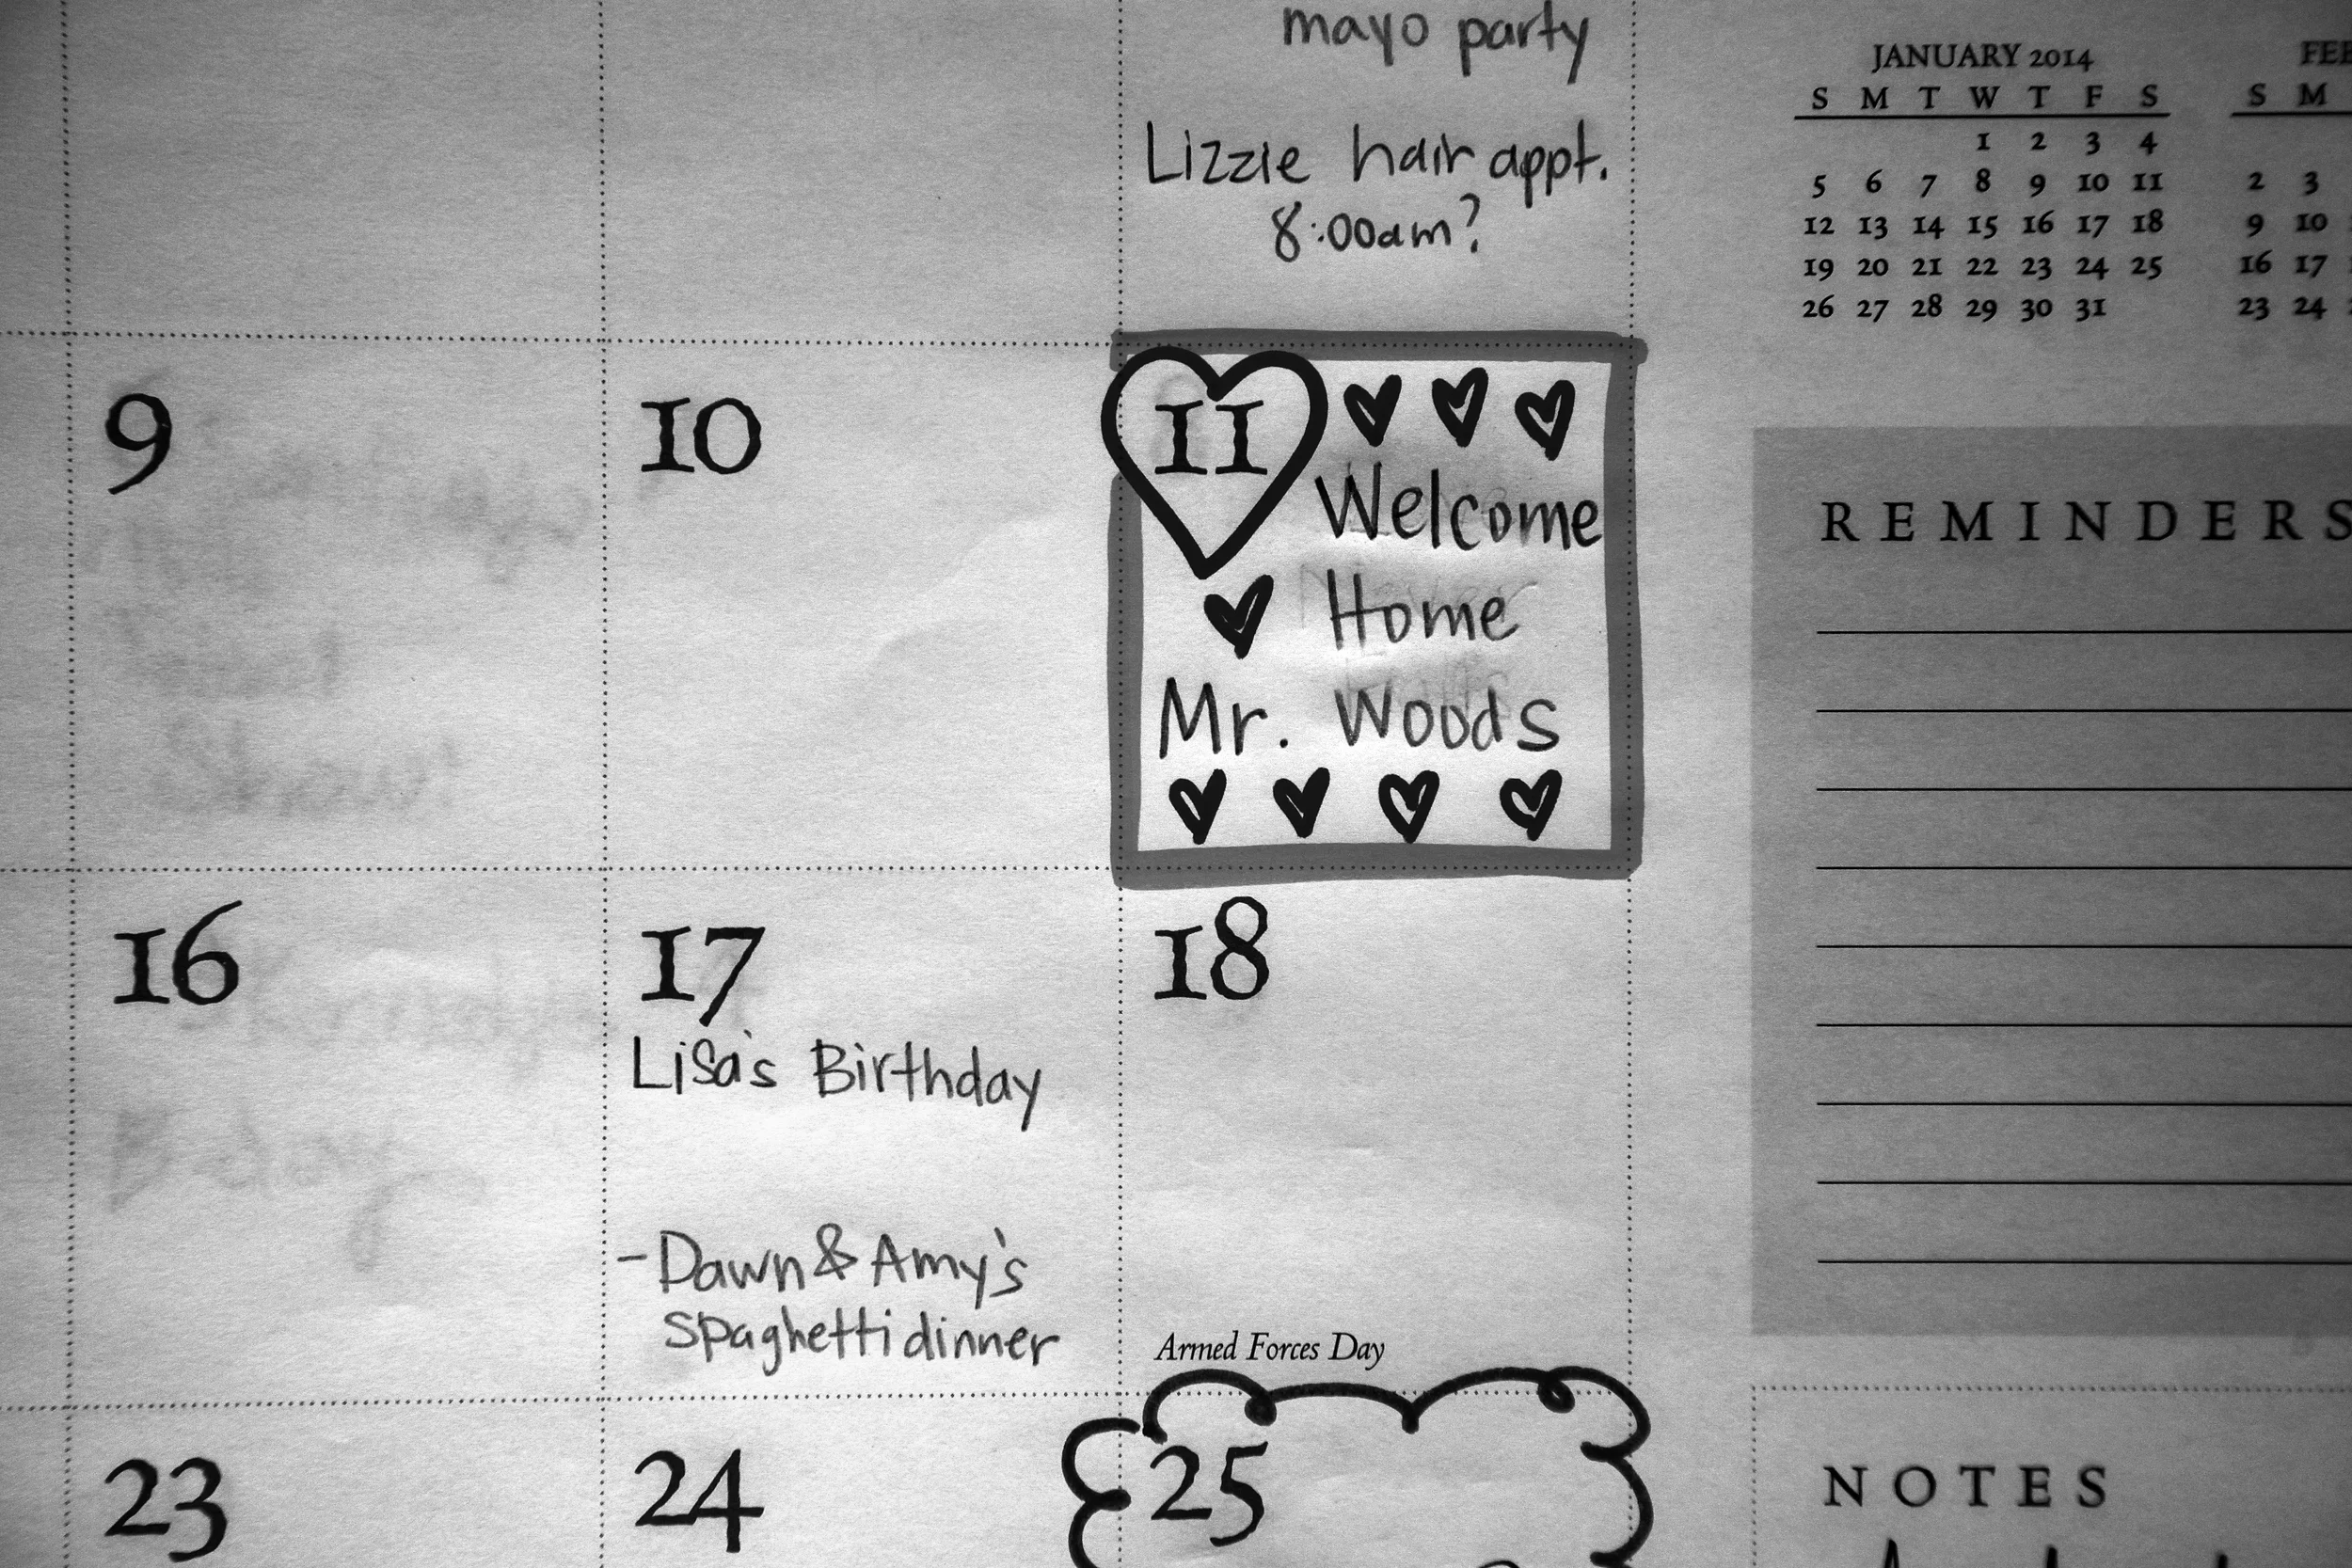 mayo party
Lizzie hair appt.
8:00am?
JANUARY 2014
S M T W T F S
1 2 3 4
5 6 7 8 9 10 11
12 13 14 15 16 17 18
19 20 21 22 23 24 25
26 27 28 29 30 31
S M
2 3
9 10
16 17
23 24
9
10
11
Welcome
Home
Mr. Woods
REMINDERS
16
17
Lisa's Birthday
-Dawn & Amy's
spaghetti dinner
18
Armed Forces Day
23
24
25
NOTES